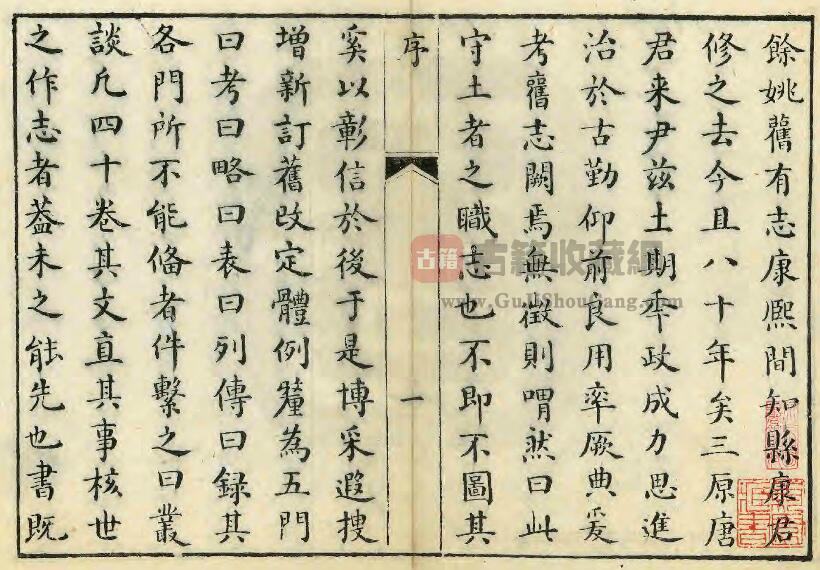 餘姚舊有志康熙間知縣康君
修之去今且八十年矣三原唐
君来尹茲土期年政成力思進
治於古勤仰前良用率厥典爰
考舊志闕焉無徴則喟然曰此
守土者之職志也不即不圖其
序
一
奚以彰信於後于是博采遐搜
增新訂舊改定體例釐為五門
曰考曰略曰表曰列傳曰録其
各門所不能偹者件繫之曰叢
談凢四十卷其文直其事核世
之作志者葢未之能先也書既
古籍
古籍收藏網
www.GuJiShouCang.com